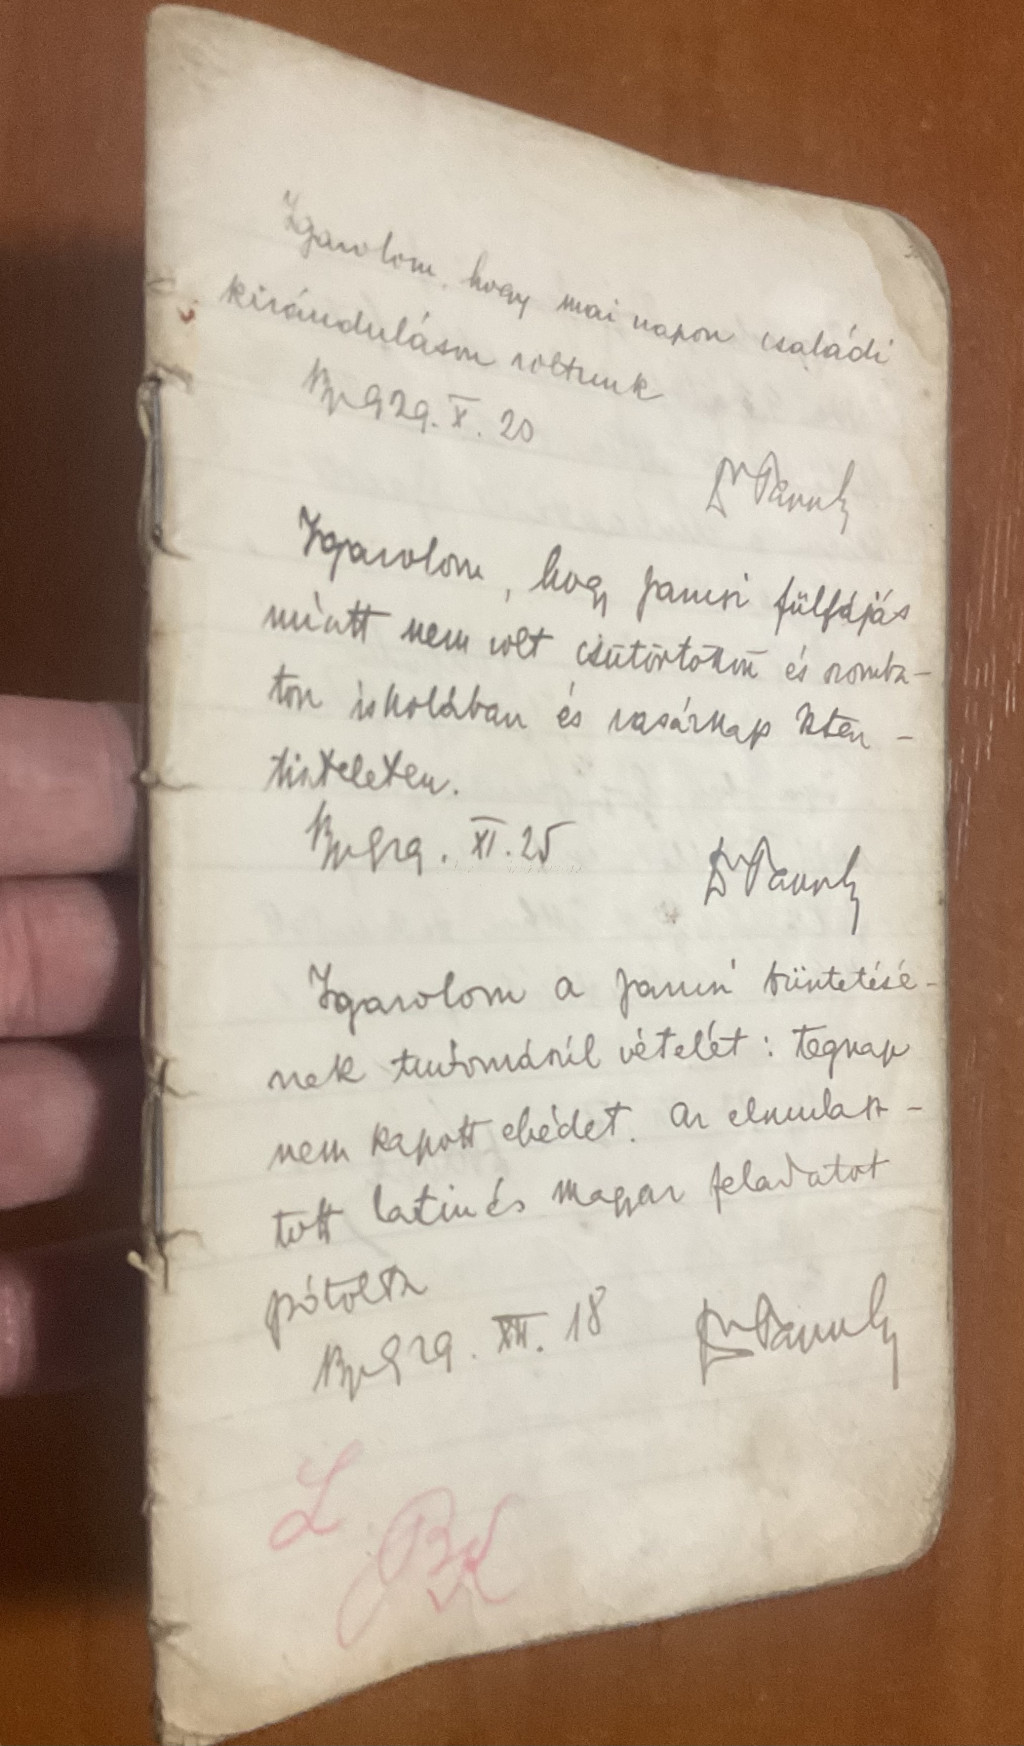 Igazolom, hogy mai napon családi
kiránduláson voltunk
Bp 929. X. 20
Dr
Igazolom, hogy Jancsi fülfájás
miatt nem volt csütörtökön és szomba-
ton iskolában és vasárnap Isten-
tiszteleten.
Bp 929. XI. 25
Dr
Igazolom a Jancsi büntetésé-
nek tudomásúl vételét: tegnap
nem kapott ebédet. Az elmulasz-
tott latin és magyar feladatot
pótolta
Bp 929. XII. 18
Dr
L